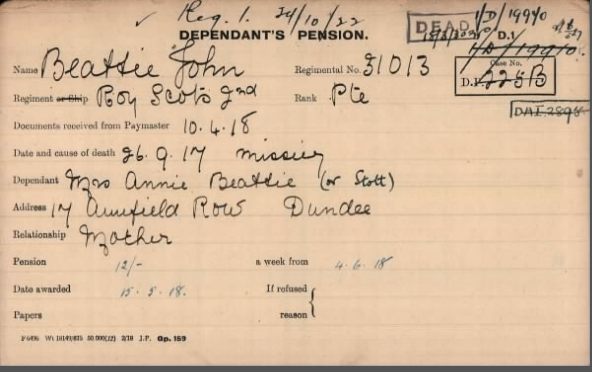 ✓ Reg. 1. 24/10/22 DEAD 1/D/19970
DEPENDANT'S PENSION. D.1
Name Beattie John Regimental No. 31013 Case No.
Regiment or Ship Roy Scots 2nd Rank Pte D.1. 225B
Documents received from Paymaster 10.4.18
Date and cause of death 26.9.17 missing
Dependant Mrs Annie Beattie (or Stott)
Address 17 Annfield Row Dundee
Relationship Mother
Pension 12/- a week from 4.6.18
Date awarded 15.5.18. If refused
Papers reason
Gp. 159